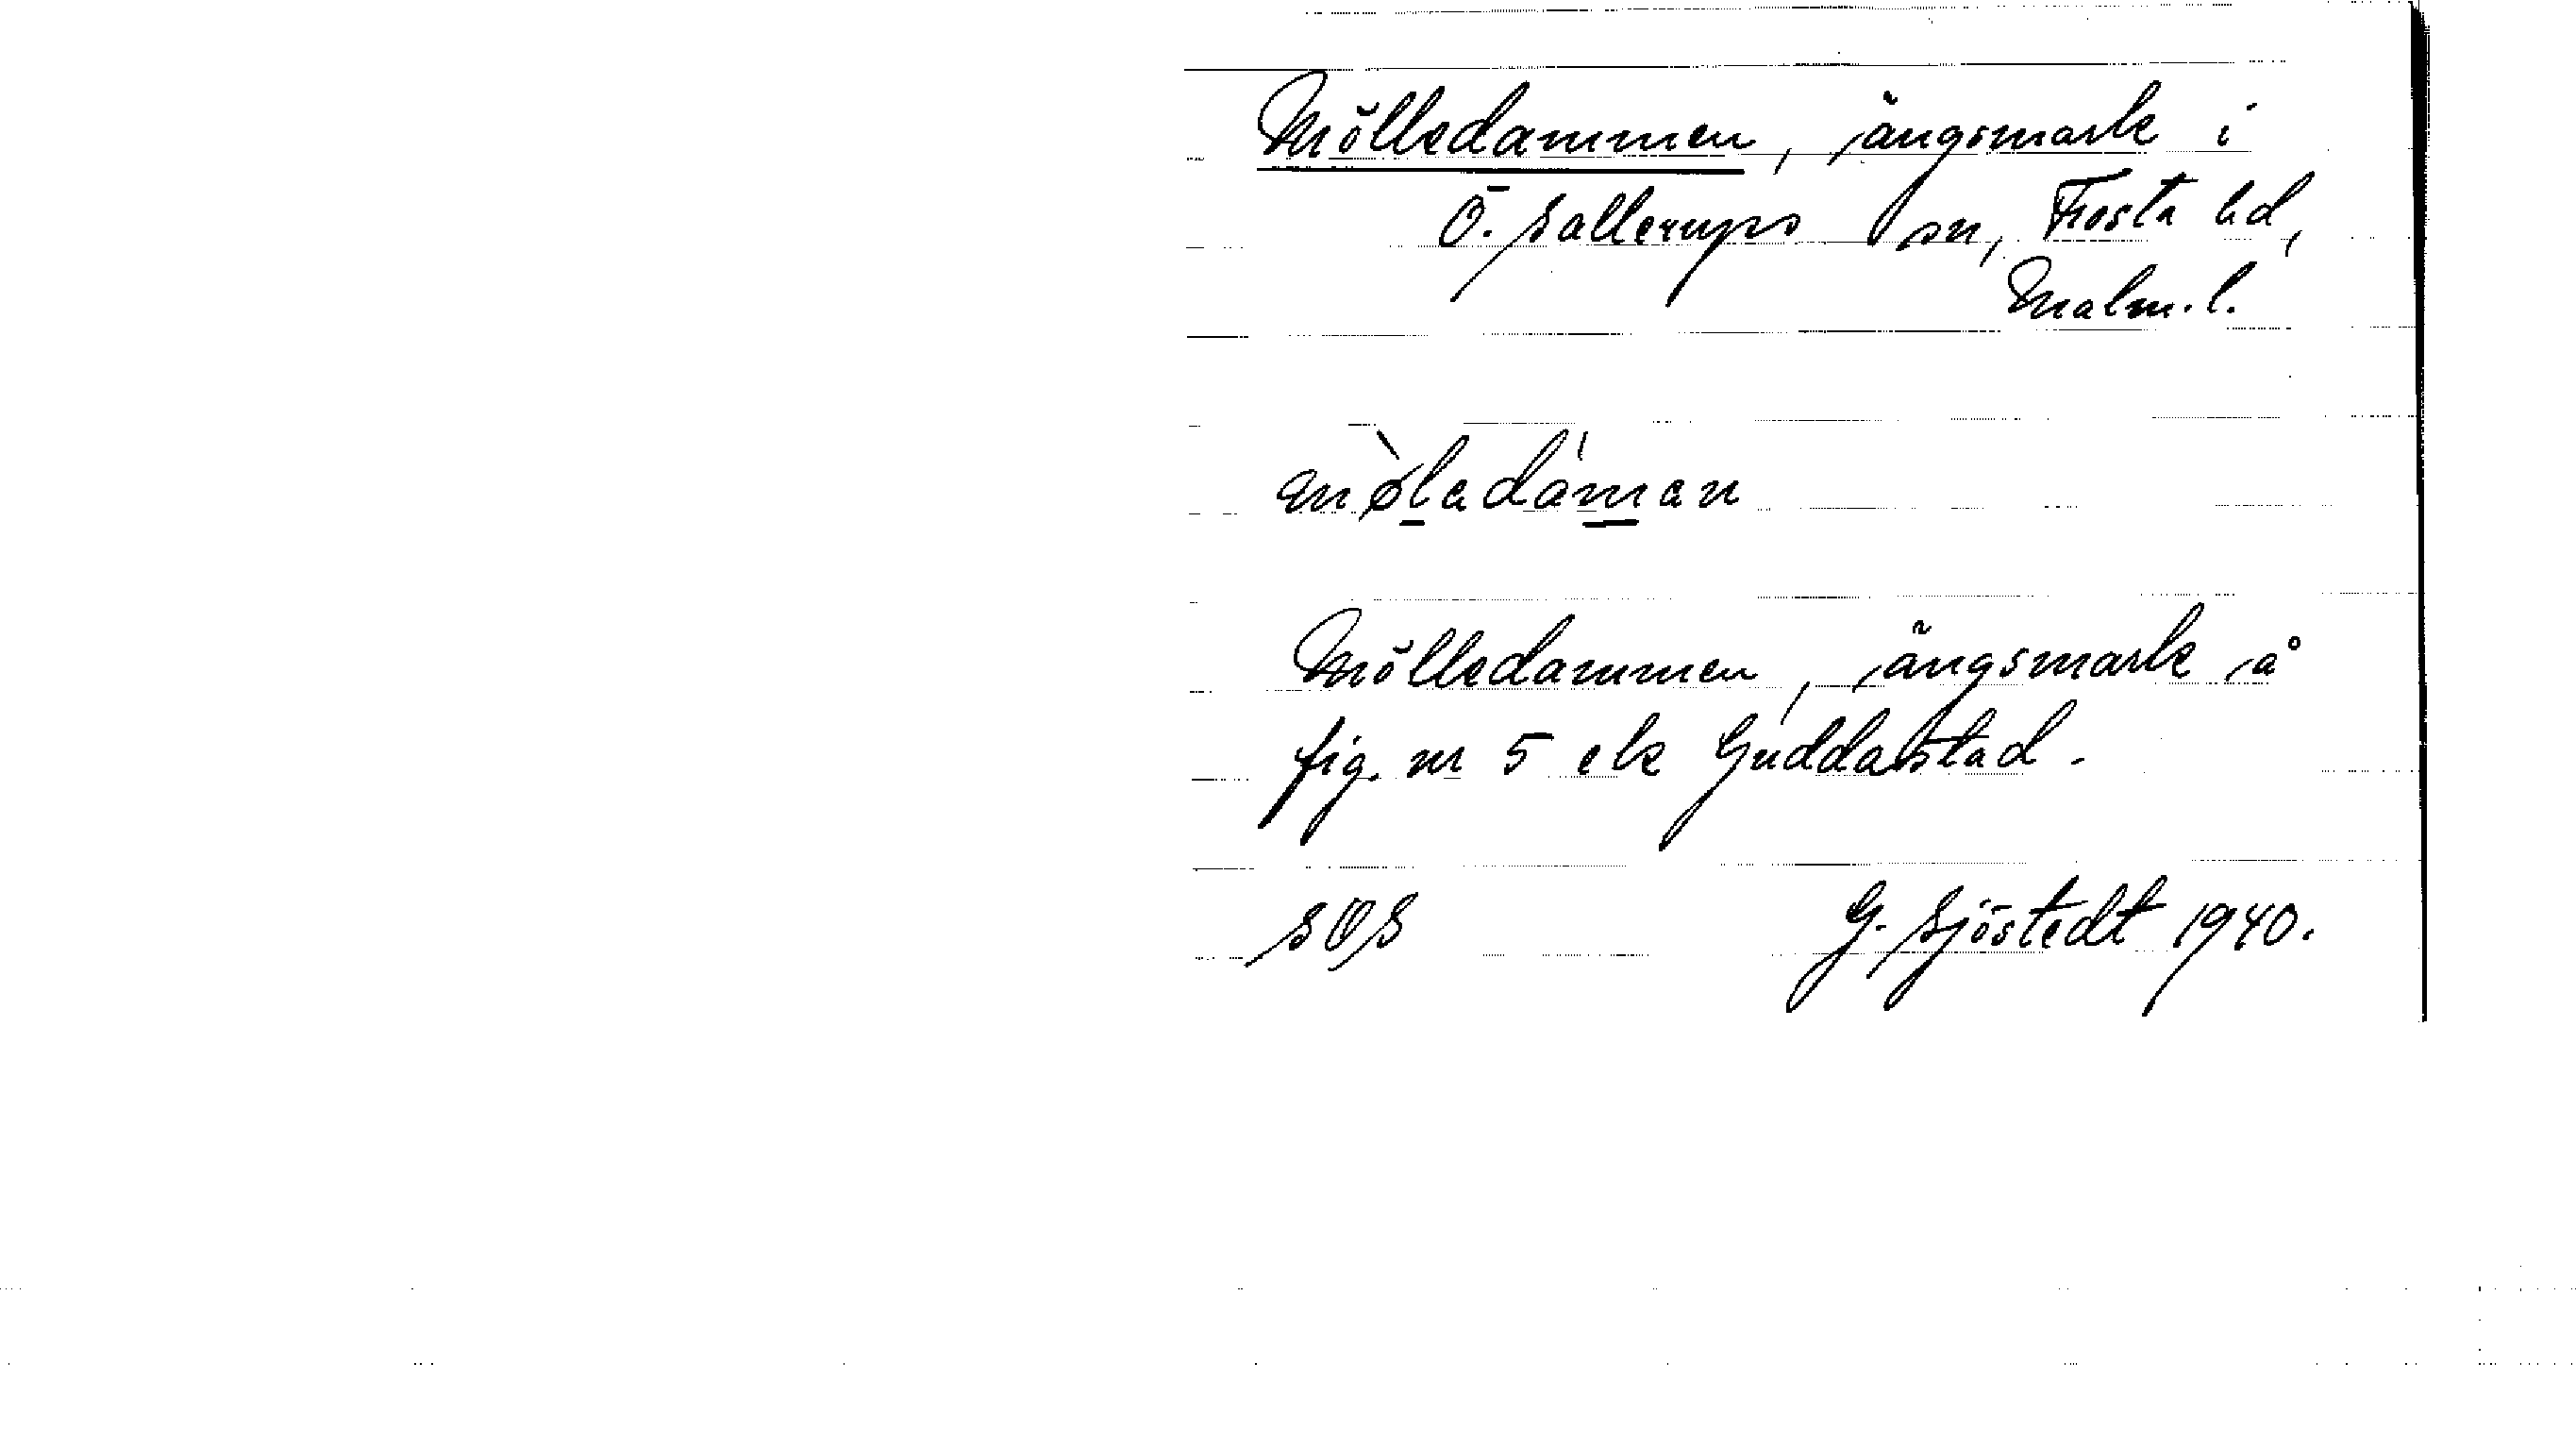 Mölledammen, ängsmark i
Ö. Sallerups sn, Frosta hd,
Malm. l.
mø̀ladáman
Mölledammen, ängsmark å
fig. nr 5 ek Guddastad.
SOS G. Sjöstedt 1940.